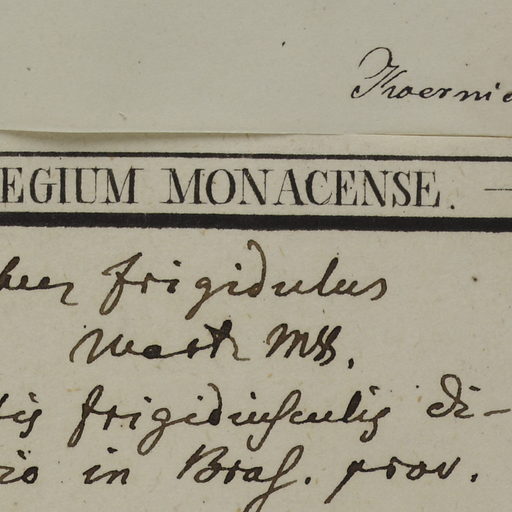 Koernic
EGIUM MONACENSE.
frigidulus
Mart. Mss.
frigidiusculis di-
in Bras. prov.